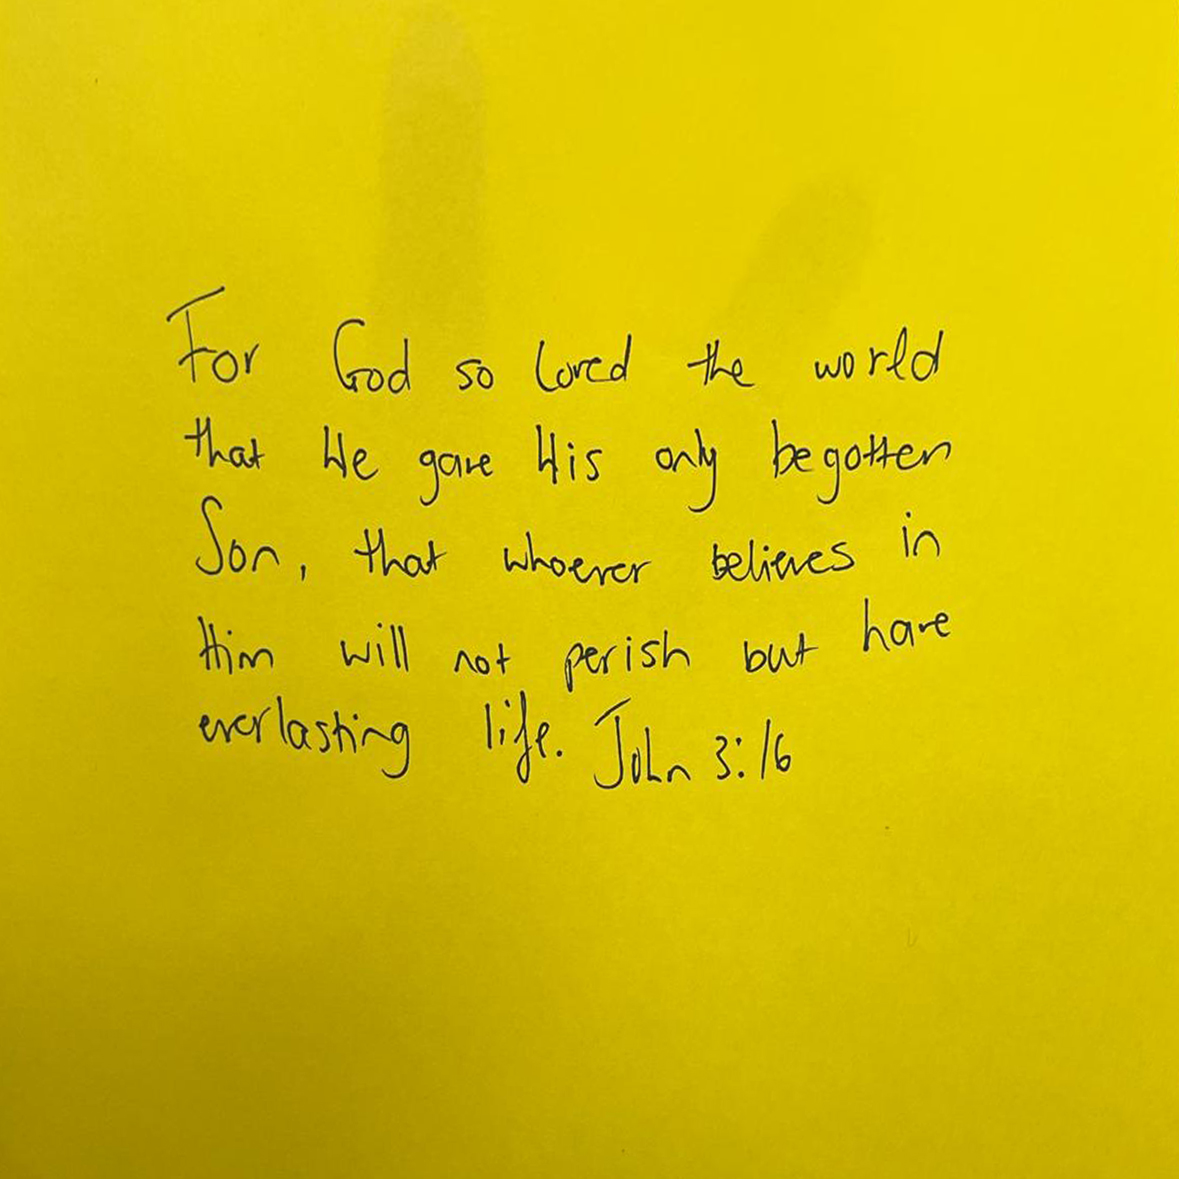 For God so loved the world
that He gave His only begotten
Son, that whoever believes in
Him will not perish but have
everlasting life. John 3:16